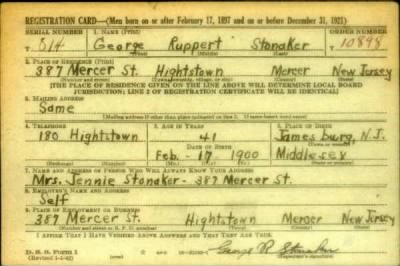 REGISTRATION CARD—(Men born on or after February 17, 1897 and on or before December 31, 1921)
SERIAL NUMBER 1. NAME (Print) ORDER NUMBER
514 George Ruppert Stonaker 10898
(First) (Middle) (Last)
2. PLACE OF RESIDENCE (Print)
387 Mercer St. Hightstown Mercer New Jersey
(Number and street) (Town, township, village, or city) (County) (State)
[THE PLACE OF RESIDENCE GIVEN ON THE LINE ABOVE WILL DETERMINE LOCAL BOARD
JURISDICTION; LINE 2 OF REGISTRATION CERTIFICATE WILL BE IDENTICAL]
3. MAILING ADDRESS
Same
[Mailing address if other than place indicated on line 2. If same insert word same]
4. TELEPHONE 5. AGE IN YEARS 6. PLACE OF BIRTH
180 Hightstown 41 James burg, N.J.
DATE OF BIRTH (Town or county)
Feb. - 17 1900 Middlesex
(Exchange) (Number) (Mo.) (Day) (Yr.) (State or country)
7. NAME AND ADDRESS OF PERSON WHO WILL ALWAYS KNOW YOUR ADDRESS
Mrs. Jennie Stonaker - 387 Mercer St.
8. EMPLOYER'S NAME AND ADDRESS
Self
9. PLACE OF EMPLOYMENT OR BUSINESS
387 Mercer St. Hightstown Mercer New Jersey
(Number and street or R. F. D. number) (Town) (County) (State)
I AFFIRM THAT I HAVE VERIFIED ABOVE ANSWERS AND THAT THEY ARE TRUE.
D. S. S. Form 1
(Revised 1-1-42) (over) George R Stonaker